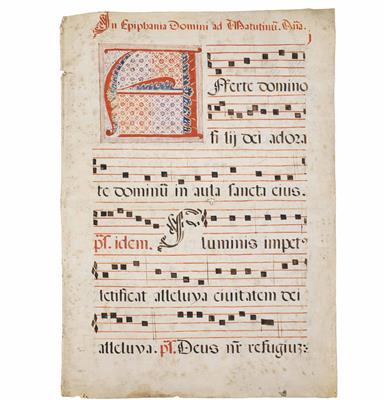 In Epiphania Domini ad Matutinũ. Aña.
Afferte domino
filij dei adora
te dominũ in aula sancta eius.
ps. idem. Fluminis impet⁹
letificat alleluya ciuitatem dei
alleluya. ps. Deus nr̃ refugiuz: